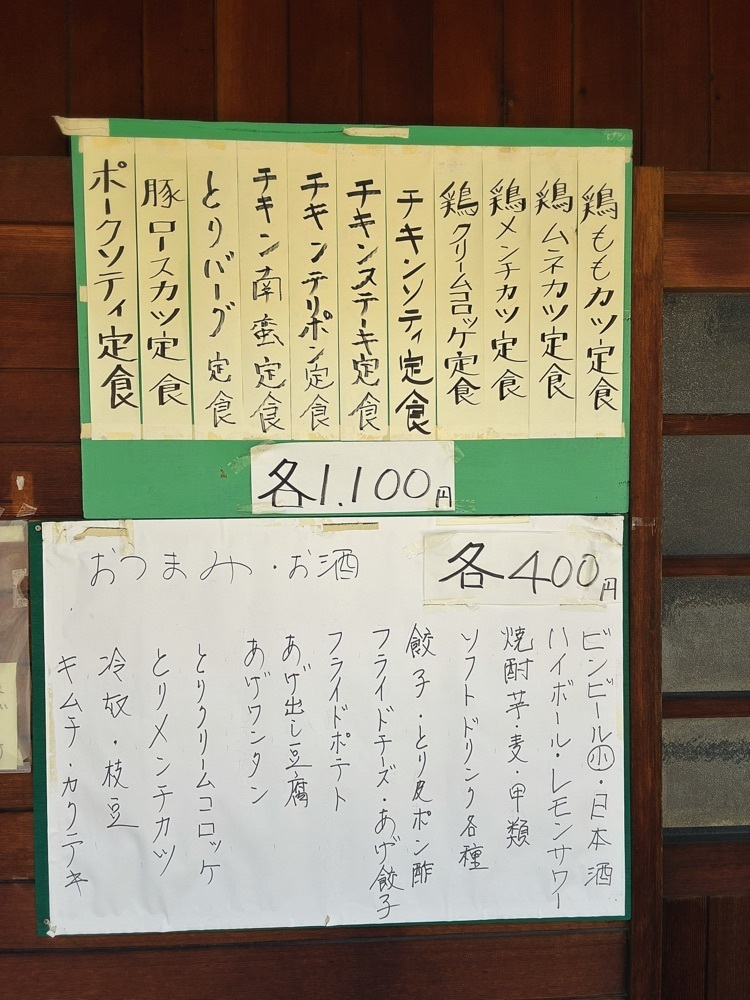 鶏ももカツ定食
鶏ムネカツ定食
鶏メンチカツ定食
鶏クリームコロッケ定食
チキンソティ定食
チキンステーキ定食
チキンテリポン定食
チキン南蛮定食
とりバーグ定食
豚ロースカツ定食
ポークソティ定食
各1.100円
おつまみ・お酒
各400円
ビンビール㊥・日本酒
ハイボール・レモンサワー
焼酎芋・麦・甲類
ソフトドリンク各種
餃子・とり皮ポン酢
フライドチーズ・あげ餃子
フライドポテト
あげ出し豆腐
あげワンタン
とりクリームコロッケ
とりメンチカツ
冷奴・枝豆
キムチ・カクテキ